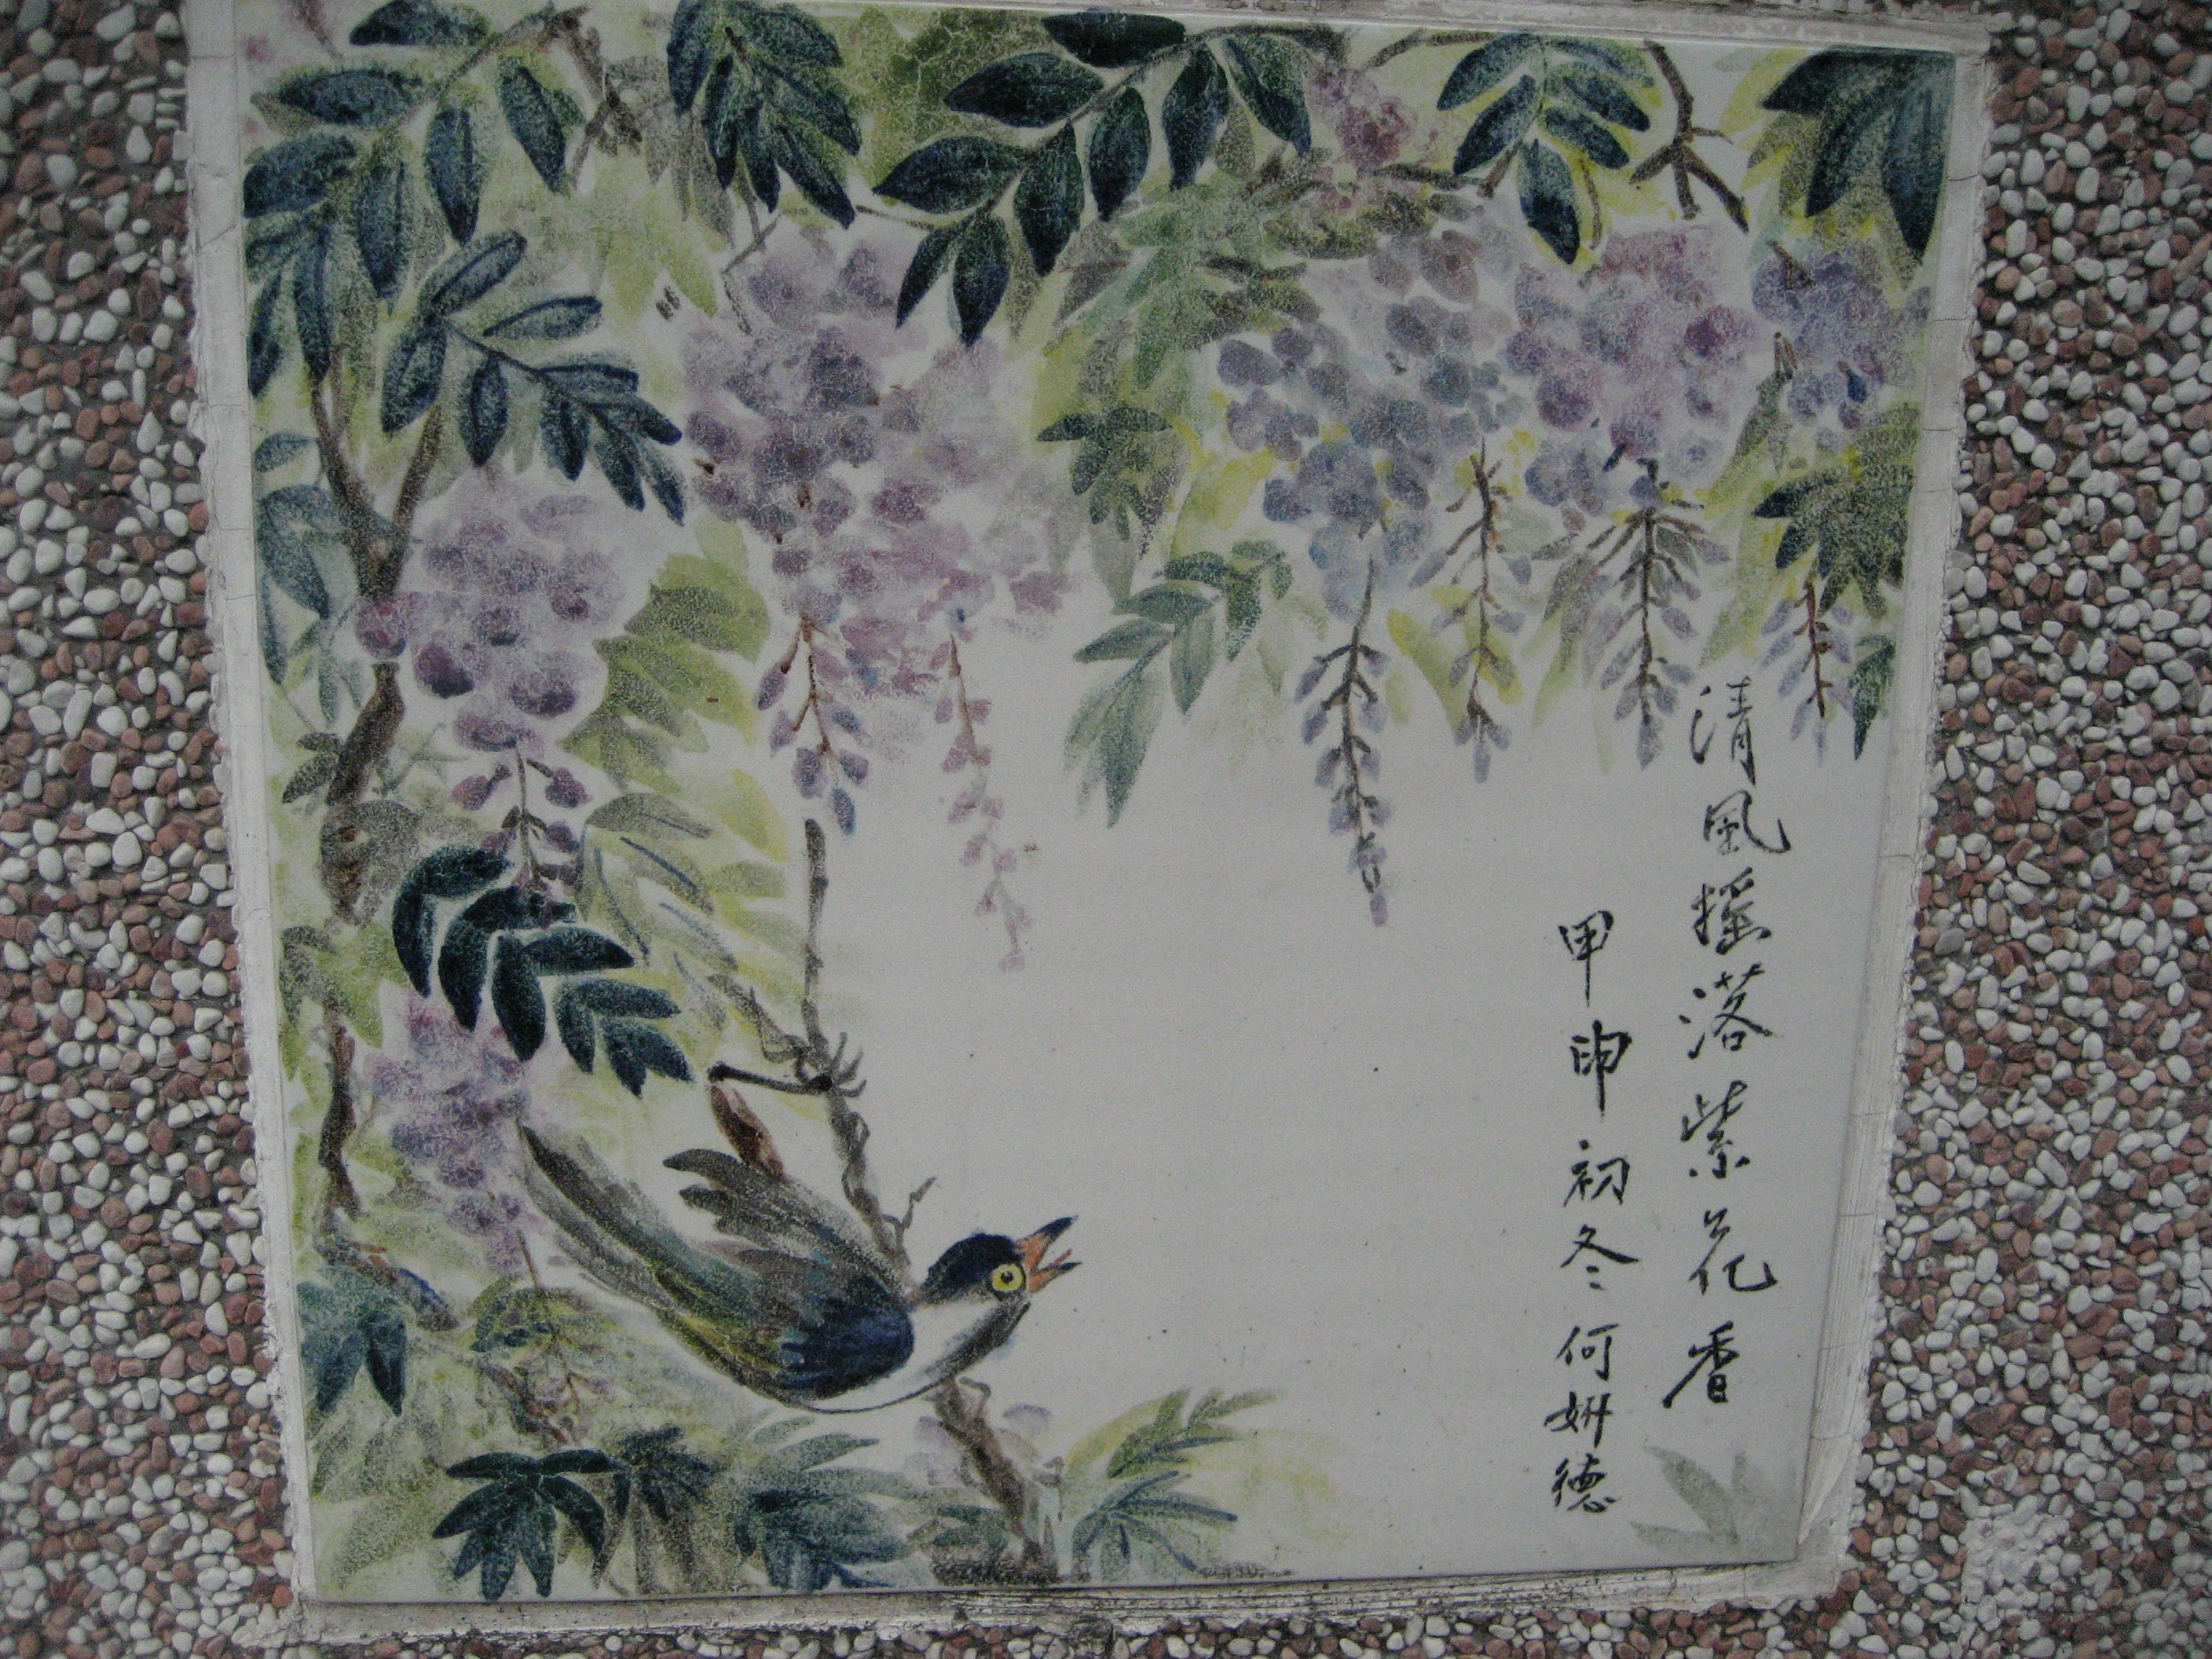 清風搖落紫花香
甲申初冬何妍德